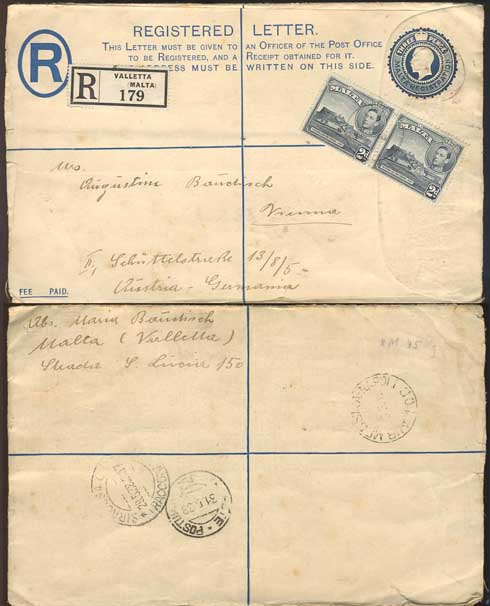 REGISTERED LETTER.
THIS LETTER MUST BE GIVEN TO AN OFFICER OF THE POST OFFICE
TO BE REGISTERED, AND A RECEIPT OBTAINED FOR IT.
THE ADDRESS MUST BE WRITTEN ON THIS SIDE.
R
R
VALLETTA
(MALTA)
179
THREE PENCE
MALTA REGISTRATION
MALTA
2d
MALTA
2d
Augustine Baudisch
Vienna
II, Schüttelstrasse 13/8/5
Austria - Germania
FEE PAID.
Abs. Maria Baudisch
Malta (Valletta)
Strada S. Lucia 150